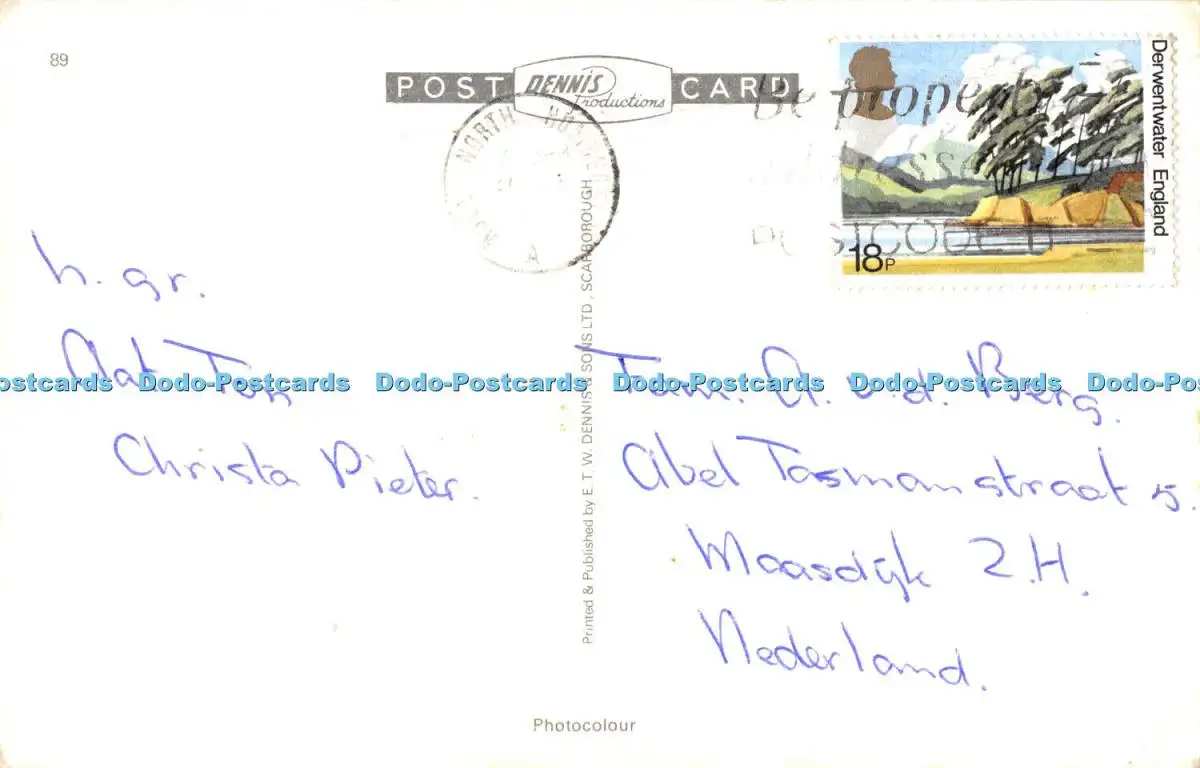 89
POST DENNIS Productions CARD
Derwentwater England
18P
Be properly
addressed
POSTCODE
NORTH
A
Printed & Published by E. T. W. DENNIS & SONS LTD., SCARBOROUGH
h. gr.
Aat Ton
Christa Pieter.
Fam. A. v.d. Berg.
Abel Tasmanstraat 5.
Maasdijk Z.H.
Nederland.
Dodo-Postcards Dodo-Postcards Dodo-Postcards Dodo-Postcards Dodo-Postcards Dodo-Postcards
Photocolour